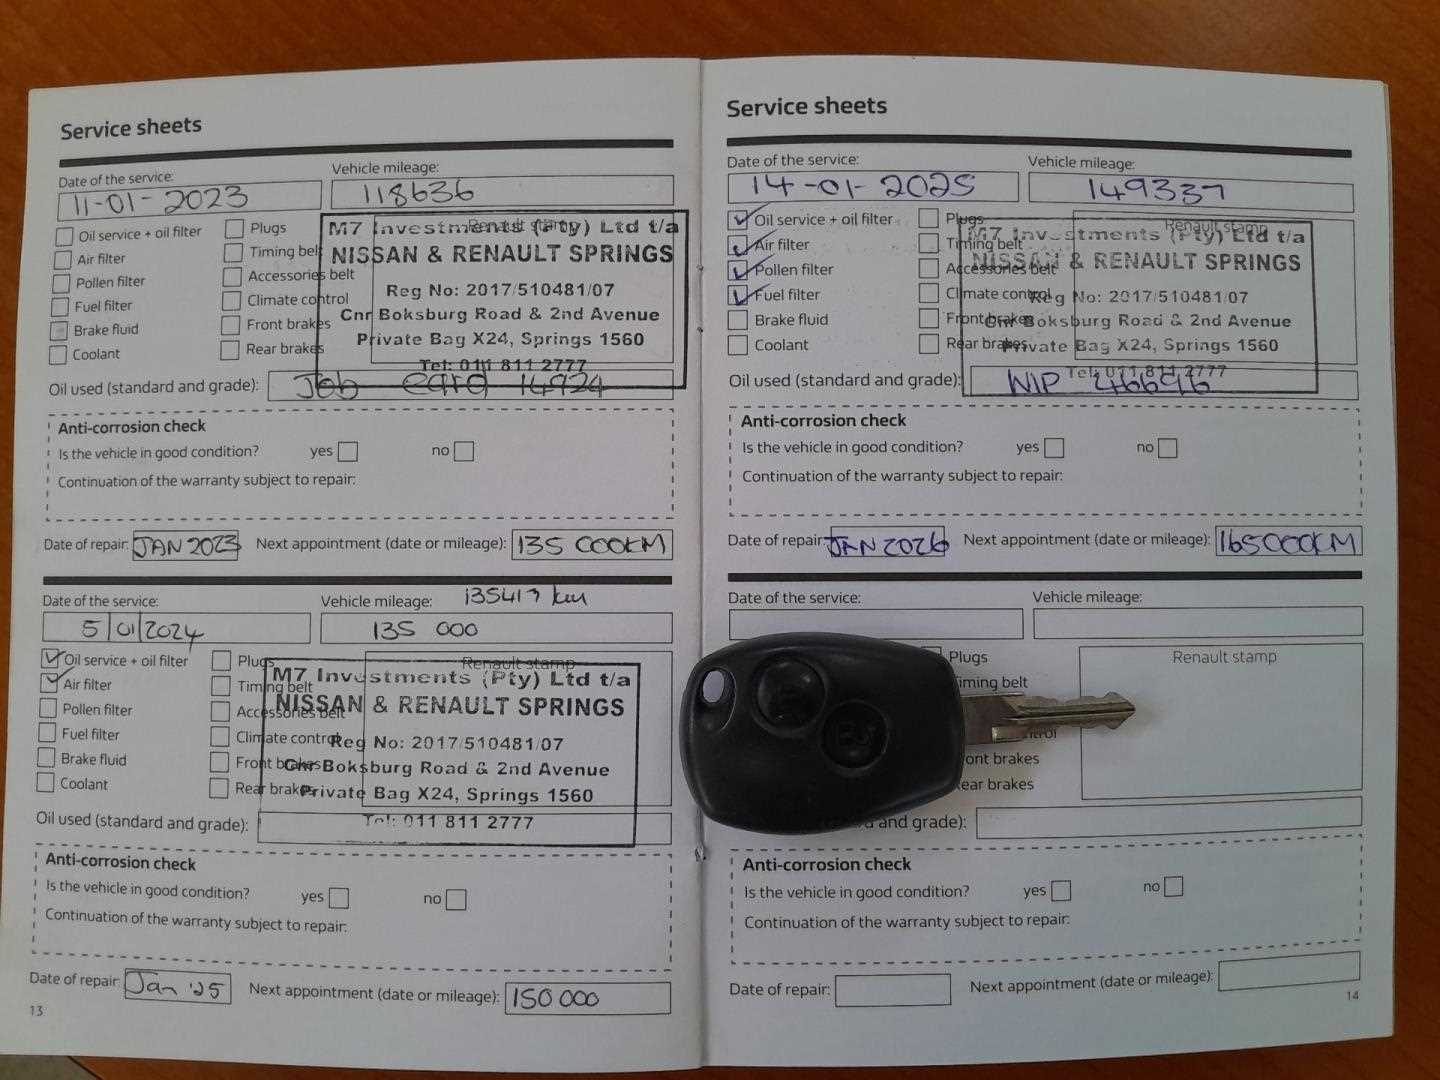 Service sheets
Date of the service:
Vehicle mileage:
11-01-2023
118636
Oil service + oil filter
Plugs
Air filter
Timing belt
Pollen filter
Accessories belt
Fuel filter
Climate control
Brake fluid
Front brakes
Coolant
Rear brakes
Renault stamp
M7 Investments (Pty) Ltd t/a
NISSAN & RENAULT SPRINGS
Reg No: 2017/510481/07
Cnr Boksburg Road & 2nd Avenue
Private Bag X24, Springs 1560
Tel: 011 811 2777
Oil used (standard and grade):
Job card 14924
Anti-corrosion check
Is the vehicle in good condition? yes no
Continuation of the warranty subject to repair:
Date of repair: JAN 2023 Next appointment (date or mileage): 135 000KM
Date of the service:
Vehicle mileage: 135417 km
5/01/2024
135 000
Oil service + oil filter
Plugs
Air filter
Timing belt
Pollen filter
Accessories belt
Fuel filter
Climate control
Brake fluid
Front brakes
Coolant
Rear brakes
Renault stamp
M7 Investments (Pty) Ltd t/a
NISSAN & RENAULT SPRINGS
Reg No: 2017/510481/07
Cnr Boksburg Road & 2nd Avenue
Private Bag X24, Springs 1560
Tel: 011 811 2777
Oil used (standard and grade):
Anti-corrosion check
Is the vehicle in good condition? yes no
Continuation of the warranty subject to repair:
Date of repair: Jan '25 Next appointment (date or mileage): 150 000
13
Service sheets
Date of the service:
Vehicle mileage:
14-01-2025
149337
Oil service + oil filter
Plugs
Air filter
Timing belt
Pollen filter
Accessories belt
Fuel filter
Climate control
Brake fluid
Front brakes
Coolant
Rear brakes
Renault stamp
M7 Investments (Pty) Ltd t/a
NISSAN & RENAULT SPRINGS
Reg No: 2017/510481/07
Cnr Boksburg Road & 2nd Avenue
Private Bag X24, Springs 1560
Tel: 011 811 2777
Oil used (standard and grade):
WIP 46696
Anti-corrosion check
Is the vehicle in good condition? yes no
Continuation of the warranty subject to repair:
Date of repair: JAN 2026 Next appointment (date or mileage): 165000KM
Date of the service:
Vehicle mileage:
Plugs
Timing belt
ntrol
ont brakes
ear brakes
Renault stamp
and grade):
Anti-corrosion check
Is the vehicle in good condition? yes no
Continuation of the warranty subject to repair:
Date of repair: Next appointment (date or mileage):
14